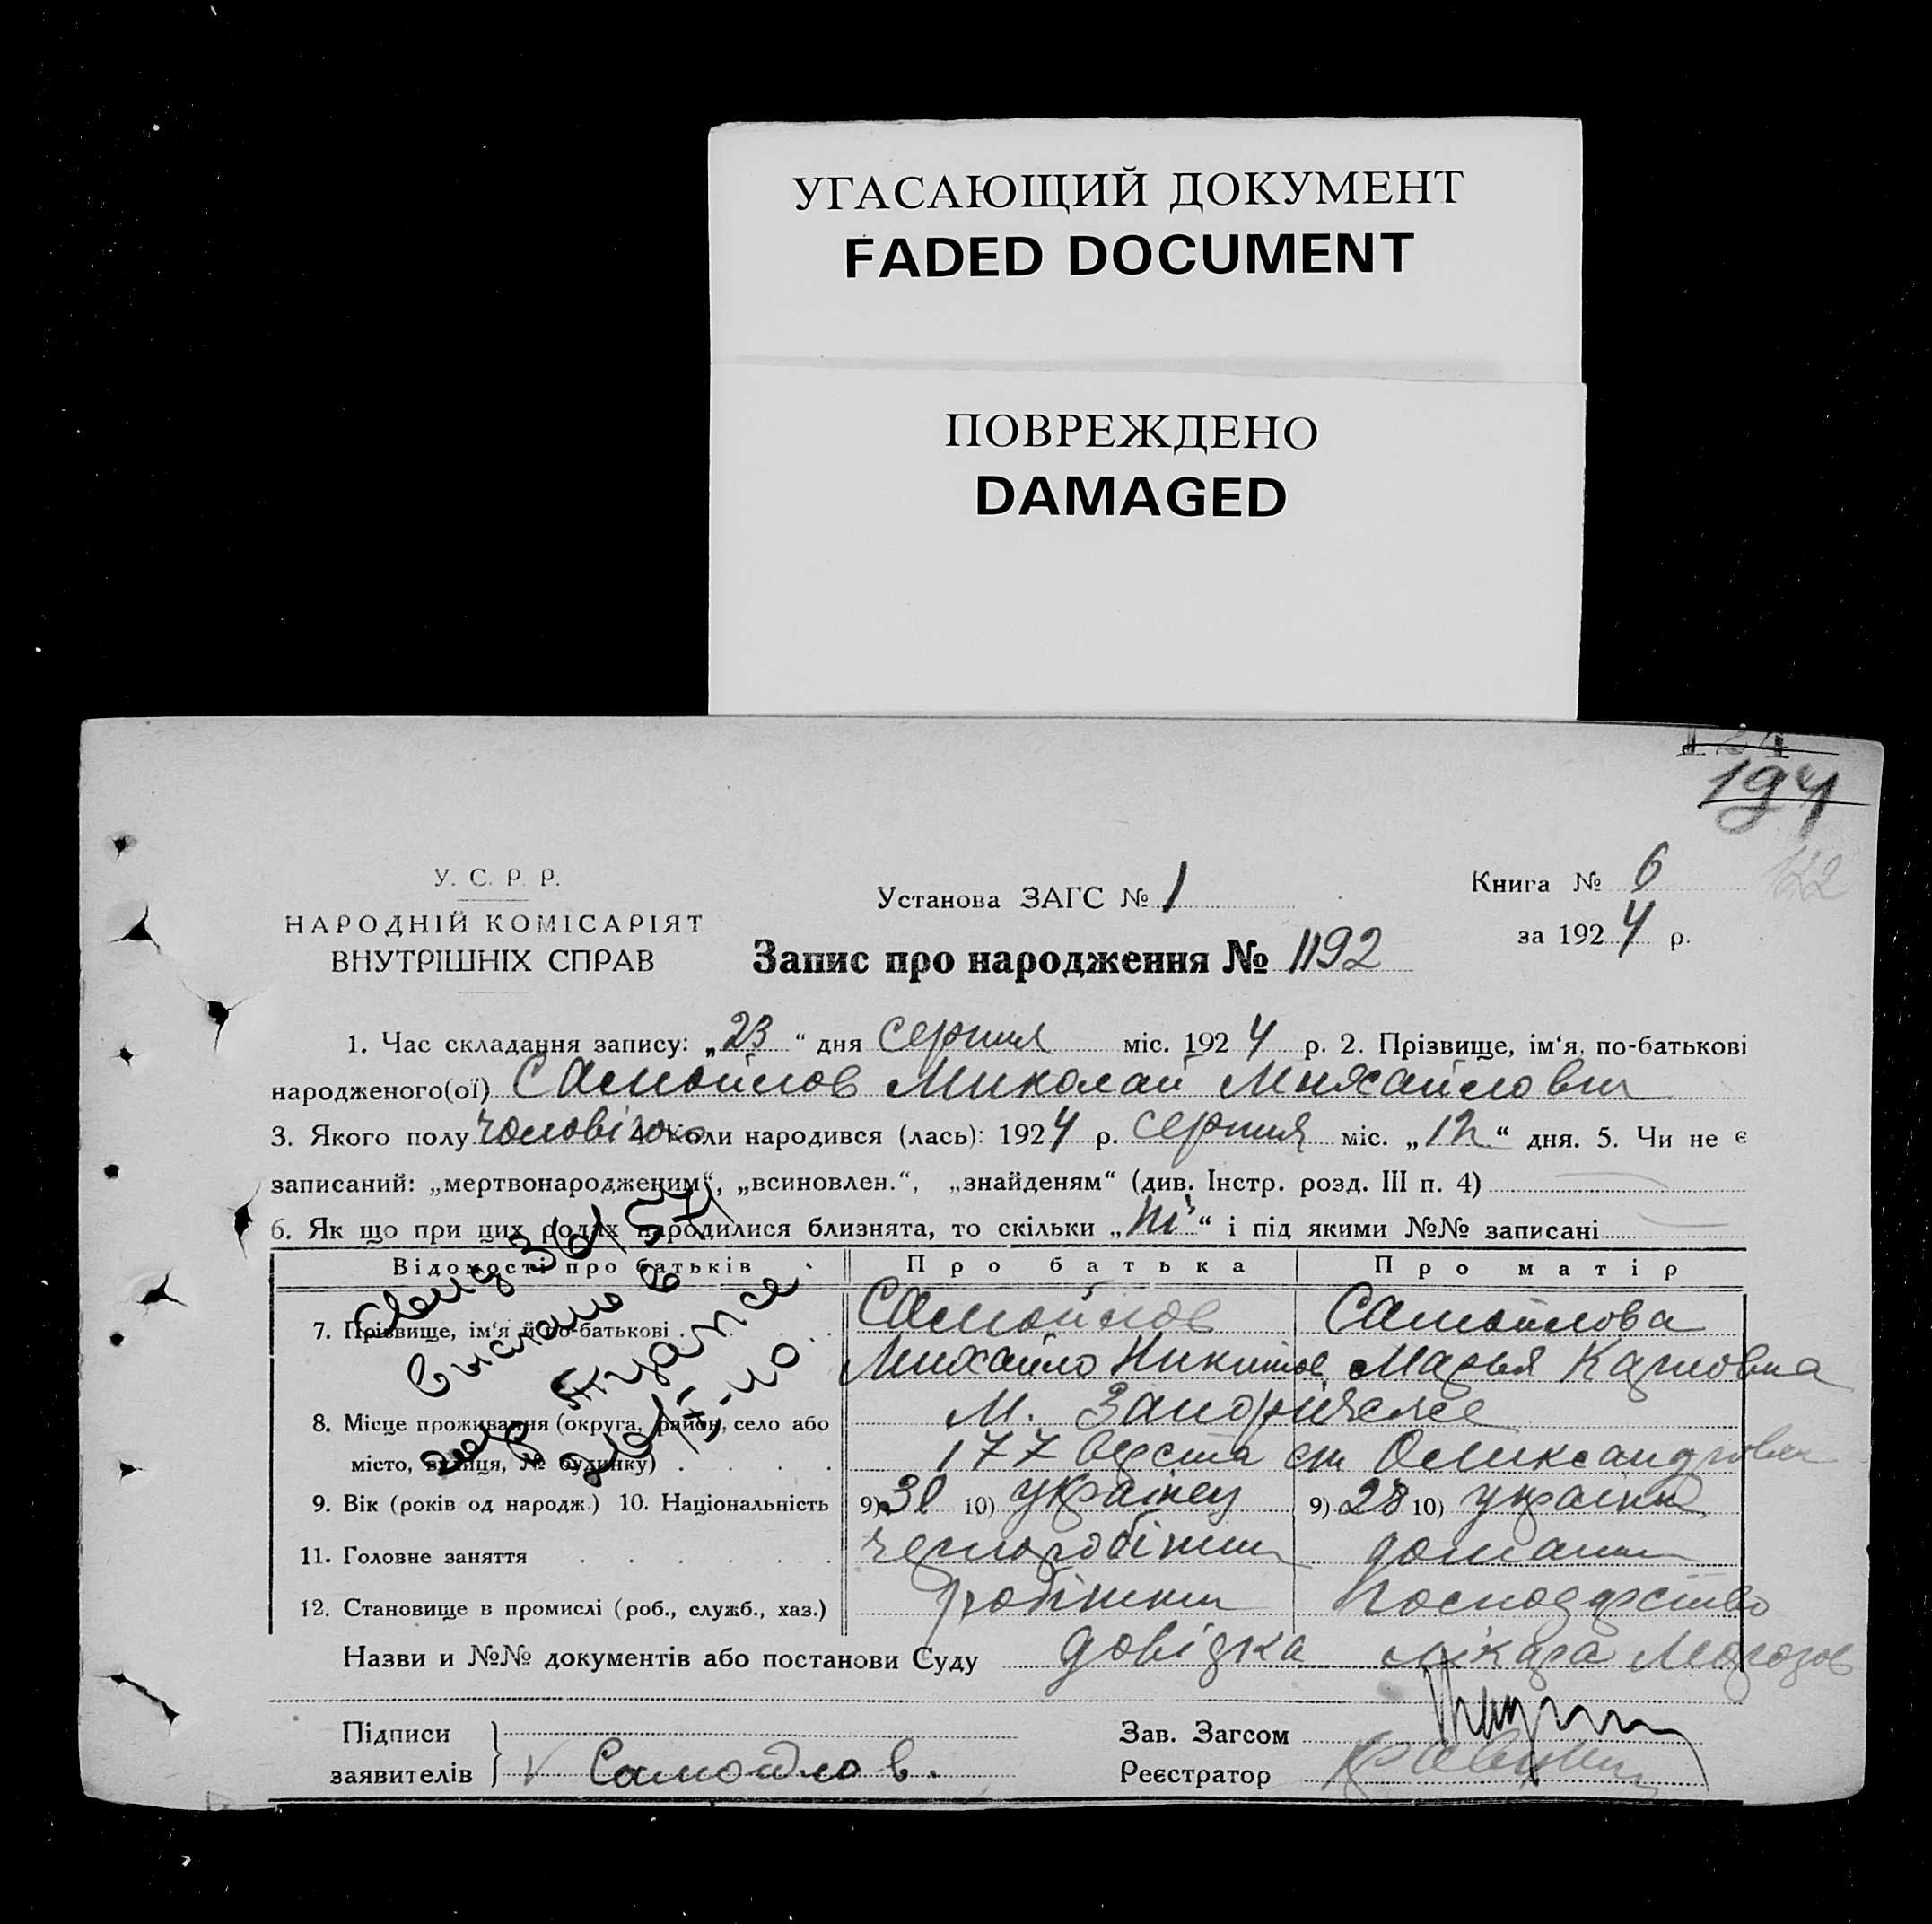 УГАСАЮЩИЙ ДОКУМЕНТ
FADED DOCUMENT
ПОВРЕЖДЕНО
DAMAGED
194
122
У. С. Р. Р.
НАРОДНІЙ КОМІСАРІЯТ
ВНУТРІШНІХ СПРАВ
Установа ЗАГС № 1
Книга № 6
за 1924 р.
Запис про народження № 1192
1. Час складання запису: „23“ дня серпня міс. 1924 р. 2. Прізвище, ім‘я, по-батькові
народженого(ої) Самойлов Миколай Михайлович
3. Якого полу чоловічого 4. Коли народився (лась): 1924 р. серпня міс. „12“ дня. 5. Чи не є
записаний: „мертвонародженим“, „всиновлен.“, „знайденям“ (див. Інстр. розд. III п. 4)
6. Як що при цих родах народилися близнята, то скільки „ні“ і під якими №№ записані
Відомості про батьків Про батька Про матір
7. Прізвище, ім‘я й по-батькові Самойлов Самойлова
Михайло Никитов Марья Карповна
8. Місце проживання (округа, район, село або М. Запоріжже
місто, вулиця, № будинку) 177 верста ст Олександров
9. Вік (років од народж.) 10. Національність 9) 30 10) українец 9) 28 10) українка
11. Головне заняття чернороб домашн
12. Становище в промислі (роб., служб., хаз.) робітник господарство
Назви и №№ документів або постанови Суду довідка лікара Морозов
Підписи
заявителів } Самойлов.
Зав. Загсом
Реєстратор